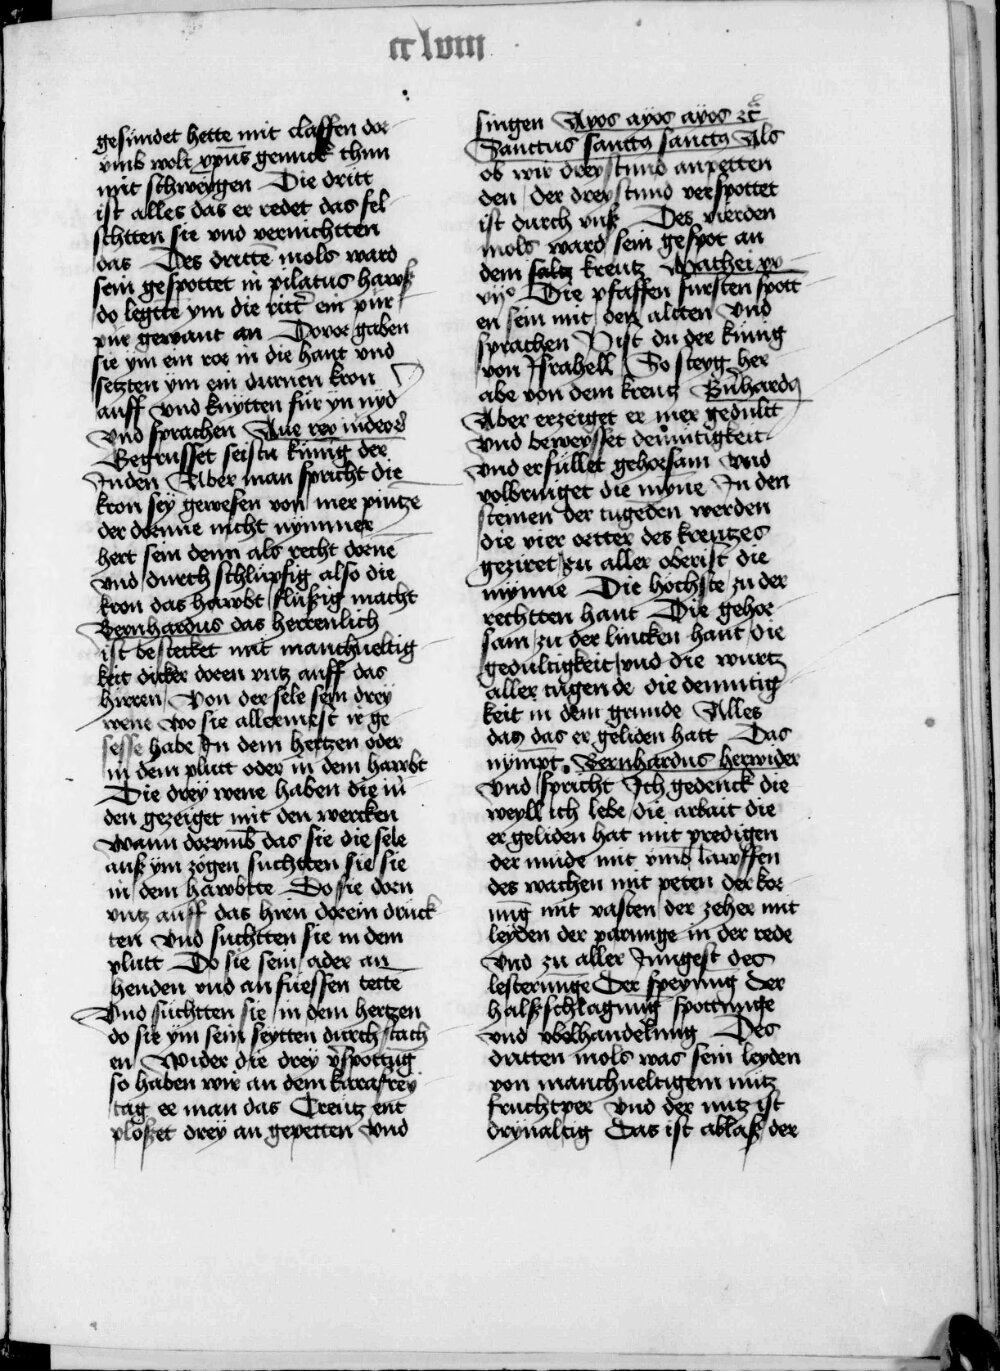 cclviii
gesundet hette mit claffen dor
vmb wolt xpūs genuck thun
mit schweygen Die dritt
ist alles das er redet das fel
schtten sie vnd vernichtten
das Des drittē mols ward
sein gespottet in pilatus hawß
do legtte ym die ritt̄ ein pur
pur gewant an Dovor gaben
sie ym ein ror in die hant vnd
setzten ym ein durnen kron
auff vnd knytten für yn nyd
vnd sprachen Aue rex iudeoꝝ
Begrusset seistu kunig der
Juden Aber man spricht die
kron sey gewesen von mer pintze
der dornne nicht nymmer
hert sein denn als recht dorne
vnd durch schlupfig also die
kron das hawbt flussig macht
Bernhardus das herrenlich
ist bestecket mit manchueltig
keit dicker doren vntz auff das
hirren Von der sele sein drey
wene wo sie allermeist ir ge
sesse habe In dem hertzen oder
in dem plutt oder in dem hawbt
Die drey wene haben die iu
den gezeiget mit den wercken
Wann dorvmb das sie die sele
auß ym zogen suchtten sie sie
in dem hawbtte Do sie dorn
vntz auff das hirn dorein druck
ten vnd suchtten sie in dem
plutt Do sie sein ader an
henden vnd an fuessen tette
Vnd suchtten sie in dem hertzen
do sie ym sein seytten durch stach
en Wider die drey v̄spottūg
so haben wir an dem karafrey
tag ee man das Creutz ent
plosset drey an gepetten vnd
singen Ayos ayos ayos ꝛc̄
Sanctus sanctꝯ sanctꝯ Als
ob wir dreystund anpetten
den der dreystund verspottet
ist durch vnß Des vierden
mols ward sein gespot an
dem saltz kreutz Mathei xx
vijᵒ Die pfaffen fursten spott
en sein mit den altten vnd
sprachen Pist du der kunig
von Israhell So steyg her
abe von dem kreutz Bn̄hardꝯ
Aber erzeiget er mer gedultt
vnd beweysset demutigkeit
vnd erfullet gehorsam vnd
volbringet die myne In den
steinen der tugeden werden
die vier oetter des kreutzes
geziret zu aller oberist die
mynne Die hochste zu der
rechtten hant Die gehor
sam zu der lincken hant die
gedultigkeit vnd die wurtz
aller tugende die demutig
keit in dem grunde Alles
das das er geliden hatt Das
nympt Bernhardus herwider
vnd spricht Ich gedenck die
weyll ich lebe die arbait die
er geliden hat mit predigen
der mude mit vmb lawffen
des wachen mit peten der kor
nug mit vasten der zeher mit
leyden der parunge in der rede
vnd zu aller Jungest des
lesterunge Der speyung der
halßschlagung spottunge
vnd vbelhandelung Des
dritten mols was sein leyden
von manchueltigem nutz
fruchtper vnd der nutz ist
dryualtig Das ist ablaß der